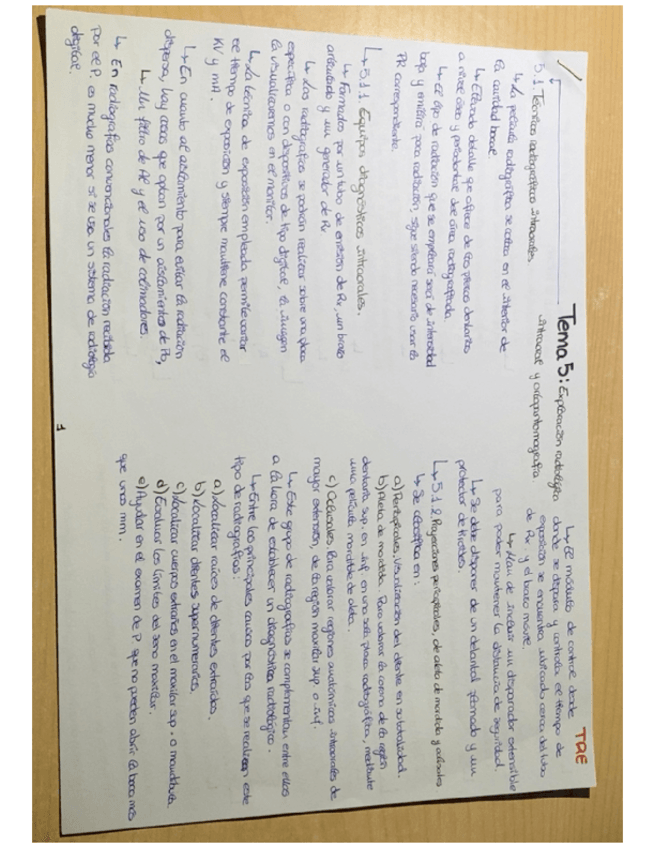 TAE
Tema 5: Exploración radiológica
intraoral y ortopantomografía
5.1. Técnicas radiográficas intraorales.
↳ La película radiográfica se coloca en el interior de
la cavidad bucal.
↳ Elevado detalle que ofrece de las piezas dentarias
a nivel óseo y periodontal del área radiografiada.
↳ El tipo de radiación que se empleará será de intensidad
baja y emitirá para radiación, sigue siendo necesario usar la
PR correspondiente.
↳ 5.1.1. Equipos diagnósticos intraorales.
↳ Formados por un tubo de emisión de Rx, un brazo
articulado y un generador de Rx
↳ Las radiografías se podrán realizar sobre una placa
específica o con dispositivos de tipo digital, la imagen
la visualizaremos en el monitor.
↳ La técnica de exposición empleada permite variar
el tiempo de exposición y siempre mantiene constante el
KV y mA.
↳ En cuanto al aislamiento para evitar la radiación
dispersa, hay casos que optan por un aislamientos de Pb,
↳ Un filtro de Al y el uso de colimadores.
↳ En radiografías convencionales la radiación recibida
por el P. es mucho menor si se usa un sistema de radiología
digital.
↳ El módulo de control desde
donde se dispara y controla el tiempo de
exposición se encuentra ubicado cerca del tubo
de Rx. y el brazo móvil.
↳ Han de incluir un disparador extensible
para poder mantener la distancia de seguridad.
↳ Se debe disponer de un delantal plomado y un
protector de tiroides.
↳ 5.1.2. Proyecciones periapicales, de aleta de mordida y oclusales
↳ Se clasifica en:
a) Periapicales. Visualización del diente en su totalidad.
b) Aleta de mordida. Para valorar la corona de la región
dentaria sup. en inf. en una sola placa radiográfica, mediante
una película mordible de aleta.
c) Oclusales. Para valorar regiones anatómicas intraorales de
mayor extensión, de la región maxilar sup o inf.
↳ Este grupo de radiografías se complementan entre ellas
a la hora de establecer un diagnóstico radiológico.
↳ Entre las principales causas por las que se realizan este
tipo de radiografías:
a) Localizar raíces de dientes extraídos.
b) Localizar dientes supernumerarios.
c) Localizar cuerpos extraños en el maxilar sup. o mandíbula.
d) Evaluar los límites del seno maxilar.
e) Ayudar en el examen de P que no pueden abrir la boca más
que unos mm.
1